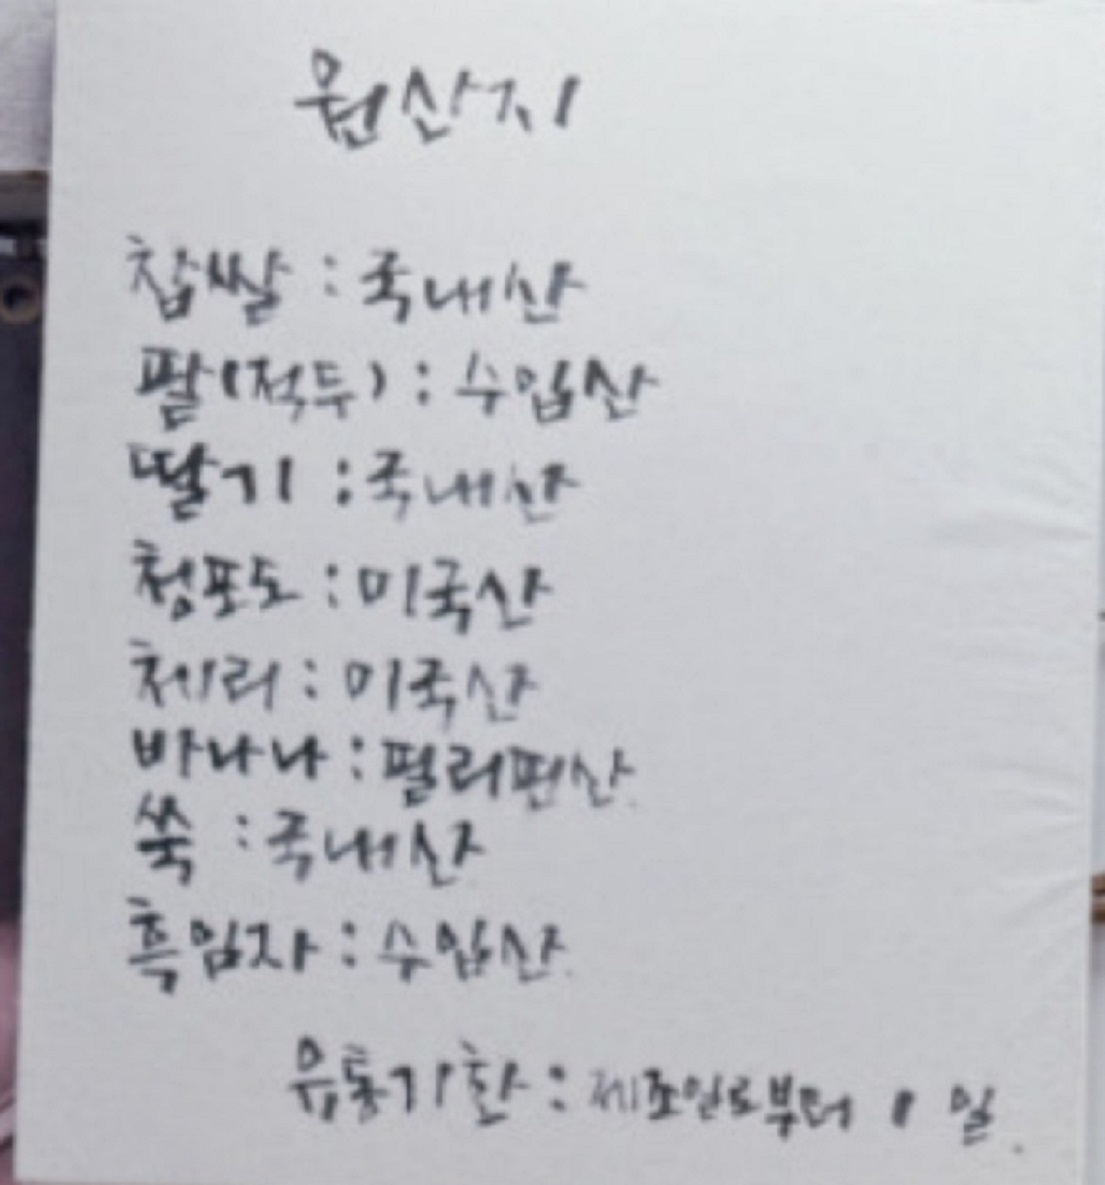 원산지
찹쌀 : 국내산
팥(적두) : 수입산
딸기 : 국내산
청포도 : 미국산
체리 : 미국산
바나나 : 필리핀산
쑥 : 국내산
흑임자 : 수입산
유통기한 : 제조일로부터 1 일.